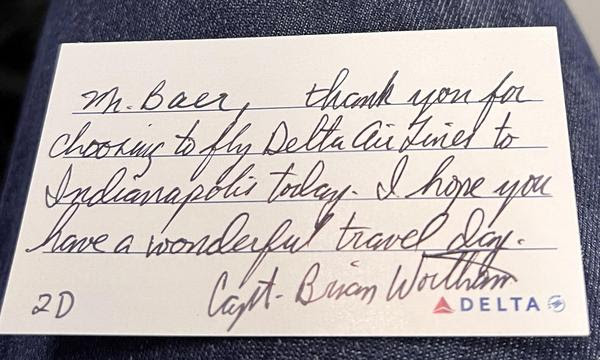 Mr. Baer, thank you for
choosing to fly Delta Air Lines to
Indianapolis today. I hope you
have a wonderful travel day.
Capt. Brian Wortham
2D
DELTA